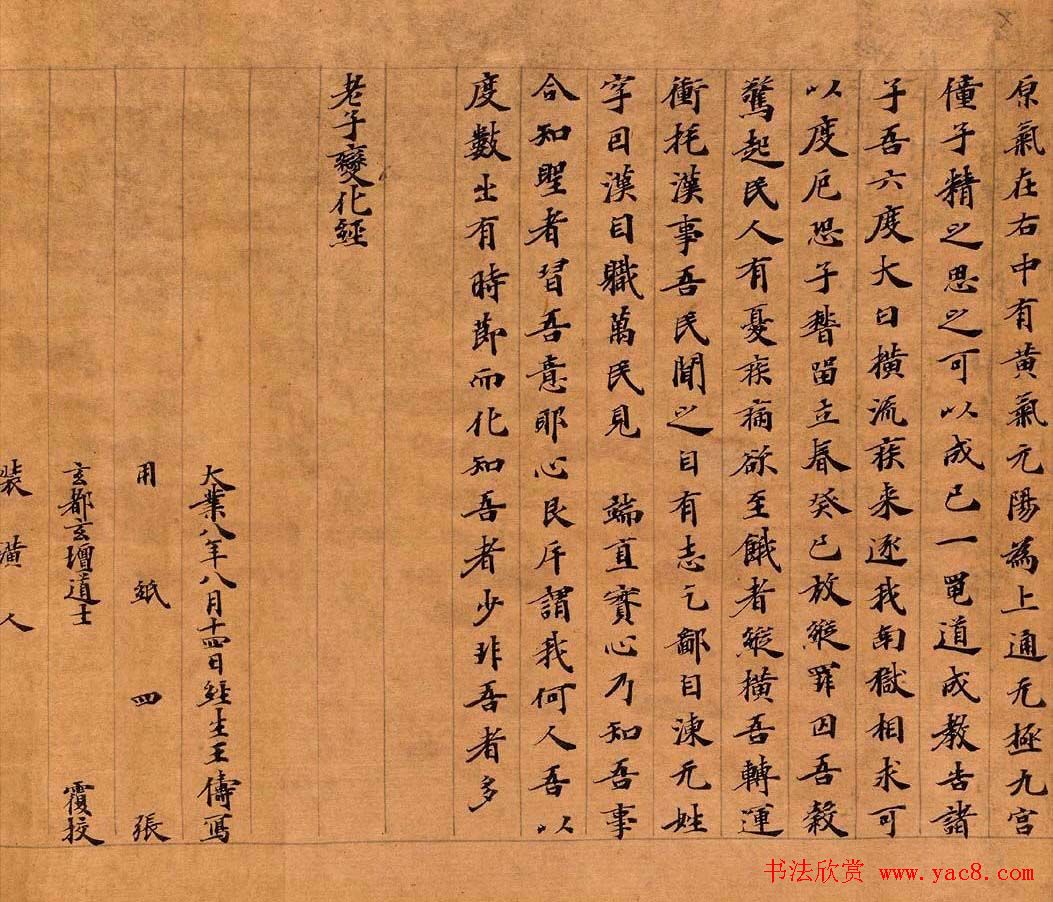 原氣在右中有黃氣元陽為上通无極九宮
僮子精之思之可以成己一黽道成教告諸
子吾六度大白橫流疾来逐我南獄相求可
以度厄恐子稽留立春癸巳放縱罪囚吾穀
驚起民人有憂疾病欲至餓者縱橫吾轉運
衝托漢事吾民聞之自有志乞鄙自涷无姓
字因漢自職萬民見 端直實心乃知吾事
合知聖者習吾意耶心艮斤謂我何人吾以
度數出有時節而化知吾者少非吾者多
老子變化經
大業八年八月十四日經生王儔寫
用紙四張
玄都玄壇道士 覆校
装潢人
书法欣赏 www.yac8.com